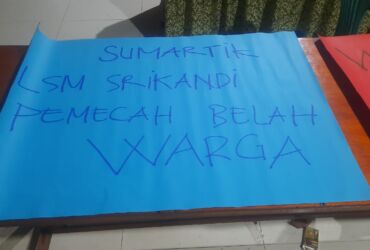 SUMARTIK
LSM SRIKANDI
PEMECAH BELAH
WARGA